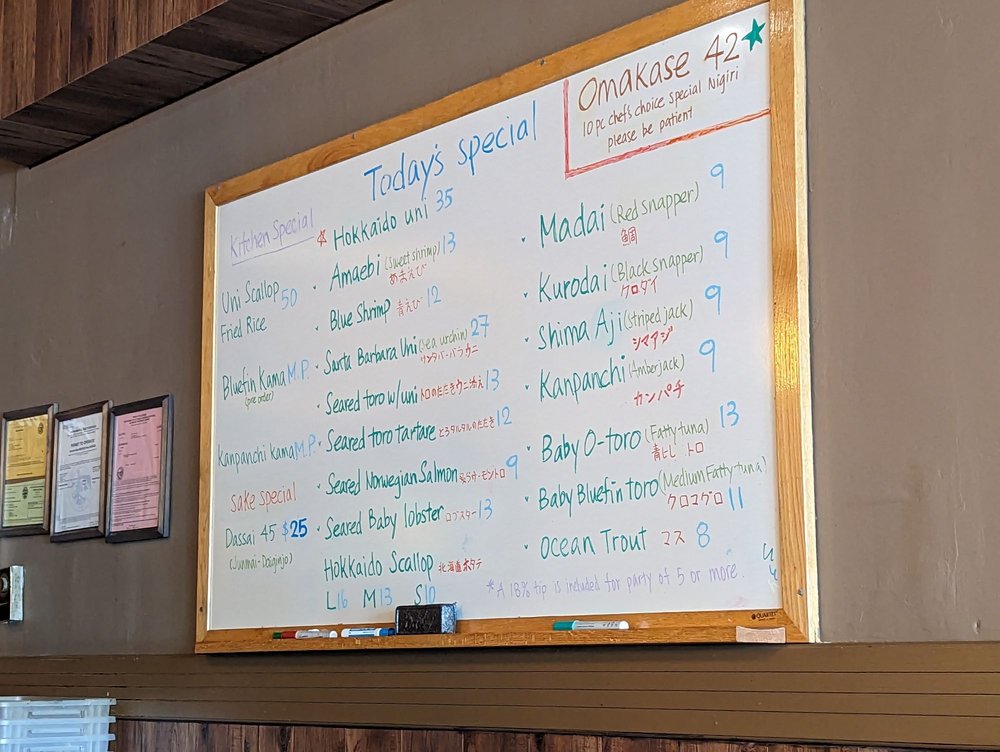 Today's special
Omakase 42
10 pc chef's choice special Nigiri
please be patient
Kitchen Special
Uni Scallop 50
Fried Rice
Bluefin Kama M.P.
(pre order)
Kanpanchi kama M.P.
sake special
Dassai 45 $25
(Junmai-Daiginjo)
Hokkaido uni 35
Amaebi (Sweet shrimp) 13
あまえび
Blue Shrimp 青えび 12
Santa Barbara Uni (sea urchin) 27
サンタバーバラウニ
Seared toro w/uni トロのたたきウニ添え 13
Seared toro tartare とろタルタルのたたき 12
Seared Norwegian Salmon 9
Seared Baby lobster ロブスター 13
Hokkaido Scallop 北海道ホタテ
L 16 M 13 S 10
Madai (Red snapper) 9
鯛
Kurodai (Black snapper) 9
クロダイ
Shima Aji (striped jack) 9
シマアジ
Kanpanchi (Amberjack) 9
カンパチ
Baby O-toro (Fatty tuna) 13
トロ
Baby Bluefin toro (Medium Fatty tuna)
クロマグロ 11
Ocean Trout マス 8
*A 18% tip is included for party of 5 or more.
QUARTET